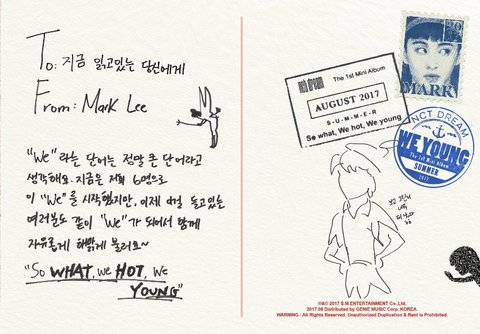 To: 지금 읽고있는 당신에게
From: Mark Lee
"We" 라는 단어는 정말 큰 단어라고
생각해요. 지금은 저희 6명으로
이 "We"를 시작했지만, 이제 이걸 듣고있는
여러분도 같이 "We"가 되어서 함께
자유롭게 해맑게 불러요~
"So WHAT, We HOT, We
YOUNG"
nct dream
The 1st Mini Album
AUGUST 2017
S-U-M-M-E-R
So what, We hot, We young
MARK
NCT DREAM
WE YOUNG
The 1st Mini Album
SUMMER
2017
©&℗ 2017 S.M.ENTERTAINMENT Co.,Ltd.
2017.08 Distributed by GENIE MUSIC Corp, KOREA.
WARNING : All Rights Reserved. Unauthorized Duplication & Rent is Prohibited.